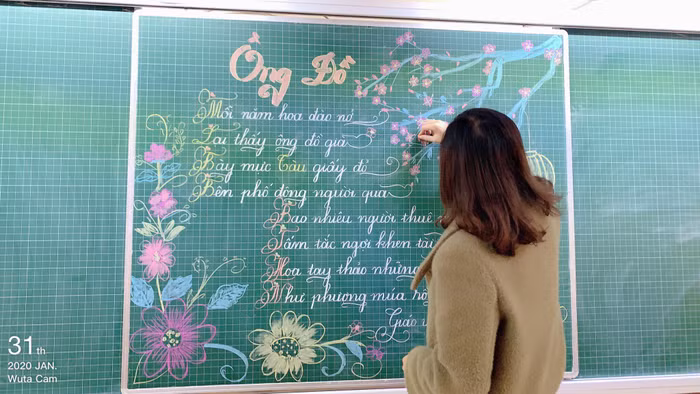 Ông Đồ
Mỗi năm hoa đào nở
Lại thấy ông đồ già
Bày mực Tàu giấy đỏ
Bên phố đông người qua
Bao nhiêu người thuê
Tấm tắc ngợi khen tài
Hoa tay thảo những
Như phượng múa
Giáo
31th
2020 JAN.
Wuta Cam